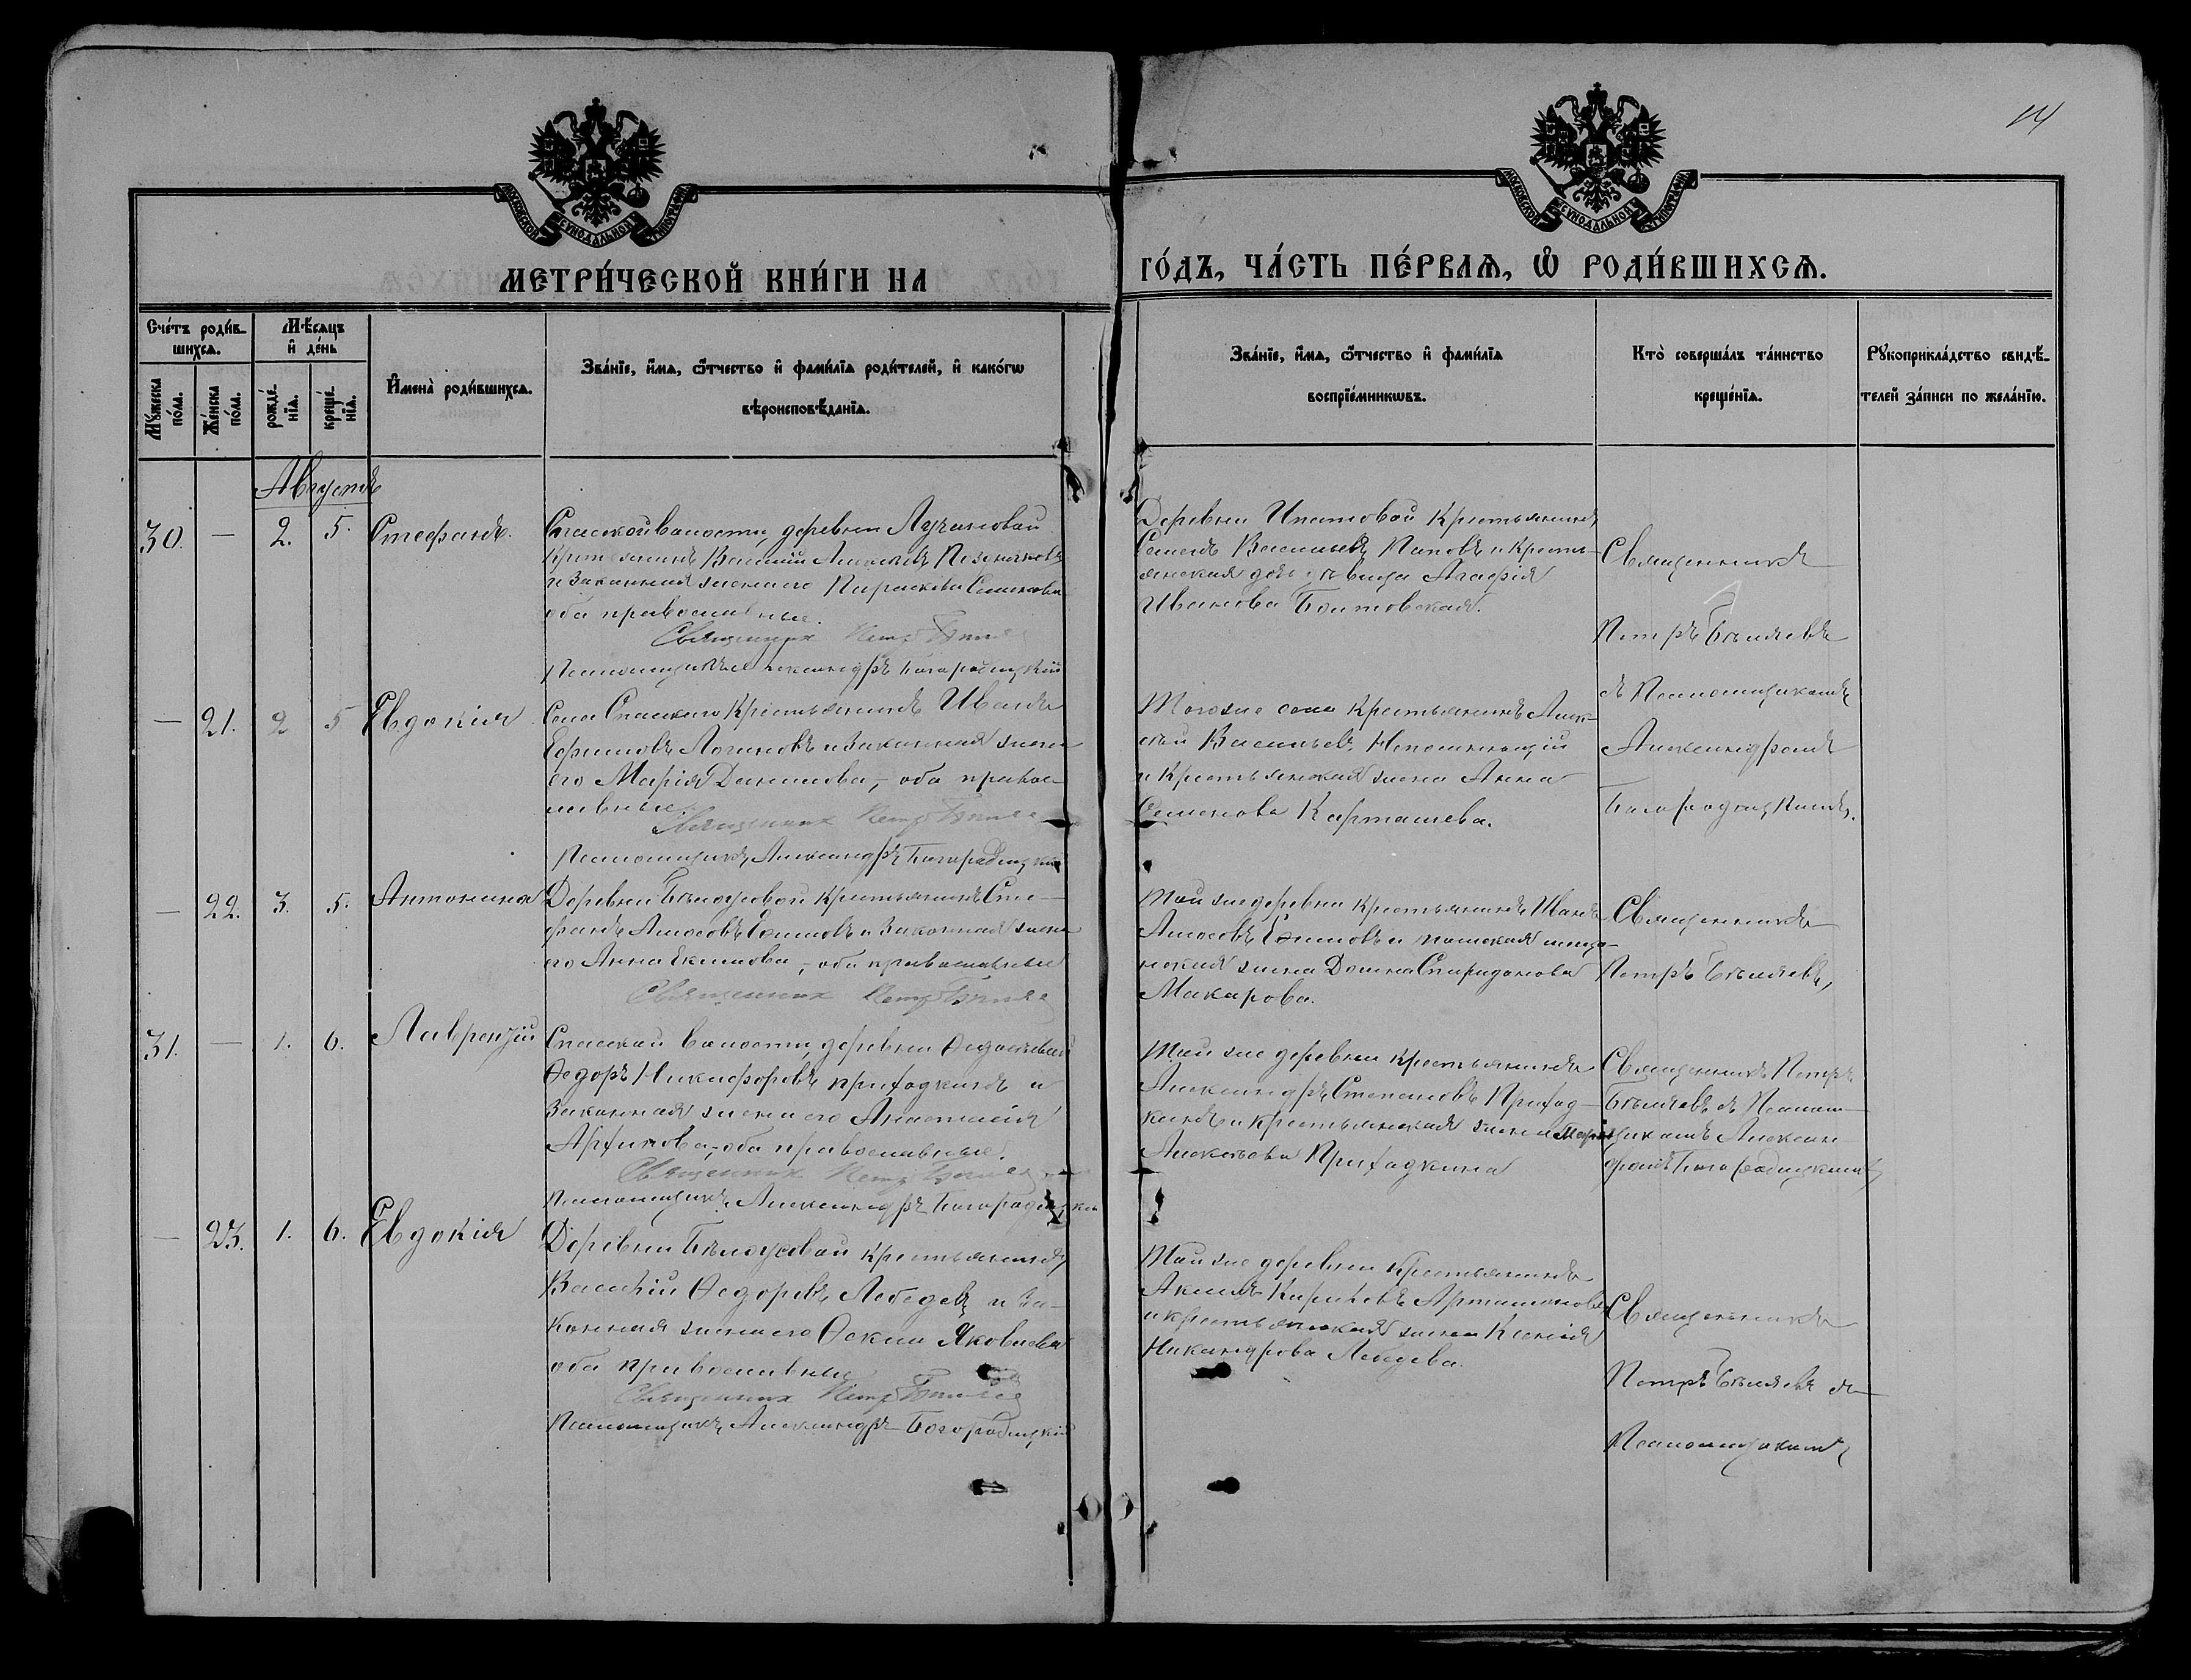 14
МОСКОВСКОЙ СѴНОДАЛЬНОЙ ТИПОГРАФІИ
МОСКОВСКОЙ СѴНОДАЛЬНОЙ ТИПОГРАФІИ
МЕТРИ́ЧЕСКОЙ КНИ́ГИ НА
ГО́ДЪ, ЧА́СТЬ ПЕ́РВАѦ, Ѡ РОДИ́ВШИХСѦ.
Сче́тъ роди́в-
шихсѧ.
Мѣ́сѧцъ
и де́нь
Мꙋ́жеска по́ла.
Же́нска по́ла.
рожде́-нїѧ.
креще́-нїѧ.
Имена̀ роди́вшихсѧ.
Зва́нїе, и́мѧ, ѻ́тчество и фами́лїѧ роди́телей, и како́гѡ
вѣроисповѣ́данїѧ.
Зва́нїе, и́мѧ, ѻ́тчество и фами́лїѧ
воспрїе́мникѡвъ.
Кто̀ соверша́лъ та́инство
креще́нїѧ.
Рꙋкоприкла́дство свидѣ́-
телей за́писи по жела́нїю.
Августъ
30. — 2. 5. Стефанъ.
Спасской волости, деревни Лучановой
Крестьянинъ Василій
и законная жена его Параскева Семенова
оба православные.
Священник Петр Беляев
Псаломщикъ Александръ Богородицкій
Деревни Ипатовой Крестьянинъ
Семенъ Васильевъ Поповъ и Кресть-
янская девица Агафія
Иванова
Священникъ
Петръ Бѣляевъ
съ Псаломщикомъ
Александромъ
Богородицкимъ.
— 21. 2 5 Евдокія
Села Спаскаго Крестьянинъ Иванъ
Ефимовъ Логиновъ и Законная жена
его Марія Данилова, — оба правос-
лавные.
Священник Петр Беляев
Псаломщикъ Александръ Богородицкій
Тогоже села Крестьянинъ Алек-
сѣй Васильевъ Непомнющій
и Крестьянская жена Анна
Семенова Карташева.
— 22. 3. 5. Антонина
Деревни Бѣлоусовой Крестьянинъ Сте-
фанъ Амосовъ и Законная жена
его Анна Екимова, — оба православные
Священник Петр Беляев
Той же деревни Крестьянинъ Иванъ
Амосовъ и
жена Домна Спиридонова
Макарова.
Священникъ
Петръ Бѣляевъ,
31. — 1. 6. Лаврентій
Спасской волости, деревни Федосѣевой
Ѳедоръ Никифоровъ Приходкинъ и
Законная жена его Анастасія
оба православные.
Священник Петр Беляев
Псаломщикъ Александръ Богородицкій
Той же деревни Крестьянинъ
Александръ Степановъ Приход-
кинъ и крестьянская жена Марія
Алексѣева Приходкина
Священникъ Петръ
Бѣляевъ съ Псалом-
щикомъ Алексан-
дромъ Богородицкимъ
— 23. 1. 6. Евдокія
Деревни Бѣлоусовой Крестьянинъ
Василій Ѳедоровъ Лебедевъ и За-
конная жена его Ѳекла Яковлева
оба православные
Священник Петр Беляев
Псаломщикъ Александръ Богородицкій
Той же деревни Крестьянинъ
Акимъ Артамоновъ
и крестьянская жена Ксенія
Никандрова Лебедева.
Священникъ
Петръ Бѣляевъ съ
Псаломщикомъ